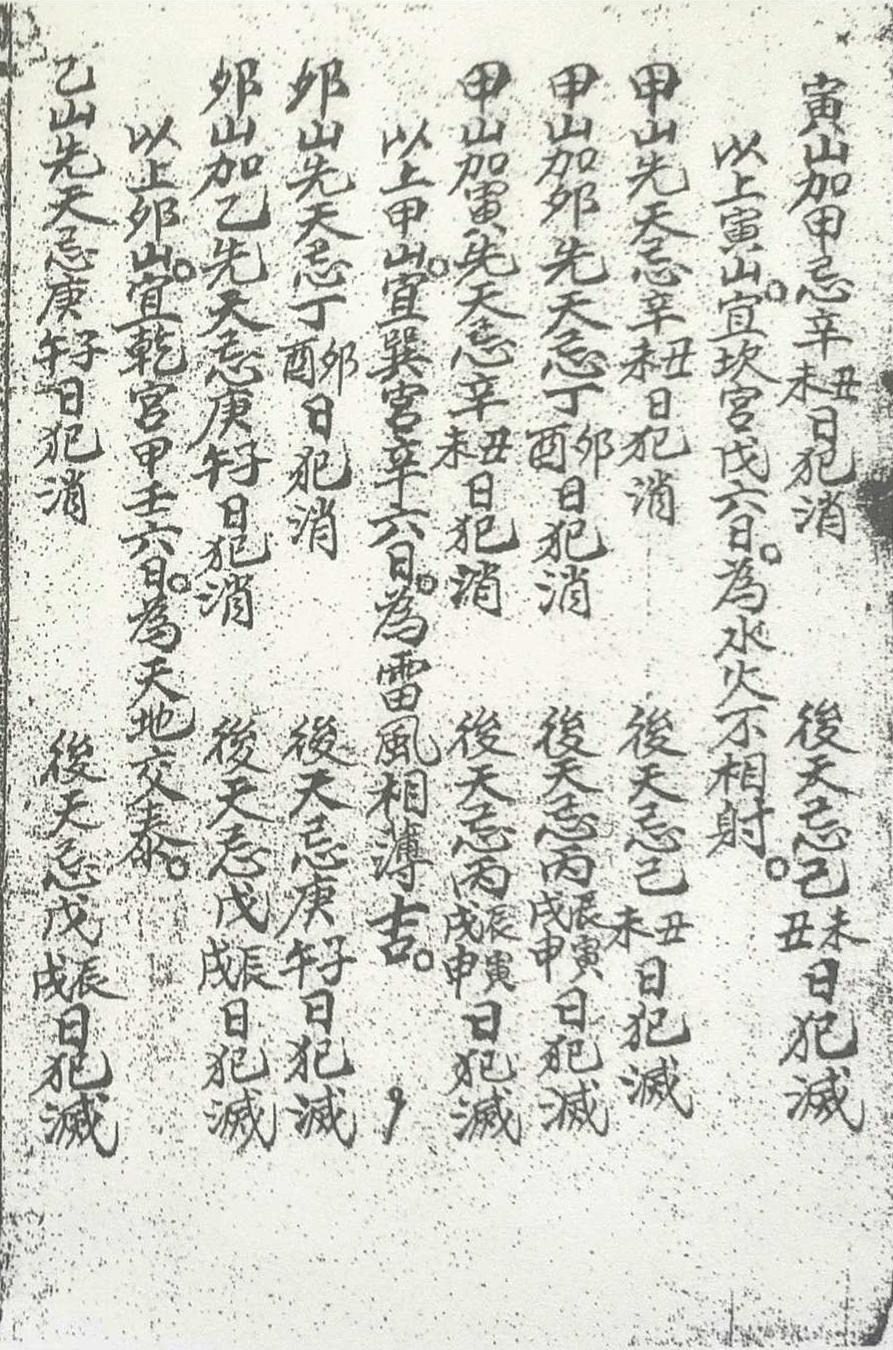 寅山加甲忌辛丑未日犯消　後天忌己未丑日犯滅
以上寅山。宜坎宮戊六日。為水火不相射。
甲山先天忌辛丑未日犯消　後天忌己丑未日犯滅
甲山加夘先天忌丁夘酉日犯消　後天忌丙辰寅戌申日犯滅
甲山加寅先天忌辛丑未日犯消　後天忌丙辰寅戌申日犯滅
以上甲山。宜巽宮辛六日。為雷風相薄吉。
夘山先天忌丁夘酉日犯消　後天忌庚子午日犯滅
夘山加乙先天忌庚子午日犯消　後天忌戊辰戌日犯滅
以上夘山。宜乾宮甲壬六日。為天地交泰。
乙山先天忌庚子午日犯消　後天忌戊辰戌日犯滅